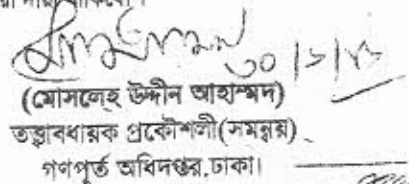 ৩০/১/১৩
(মোসলেহ উদ্দীন আহাম্মদ)
তত্ত্বাবধায়ক প্রকৌশলী(সমন্বয়)
গণপূর্ত অধিদপ্তর,ঢাকা।